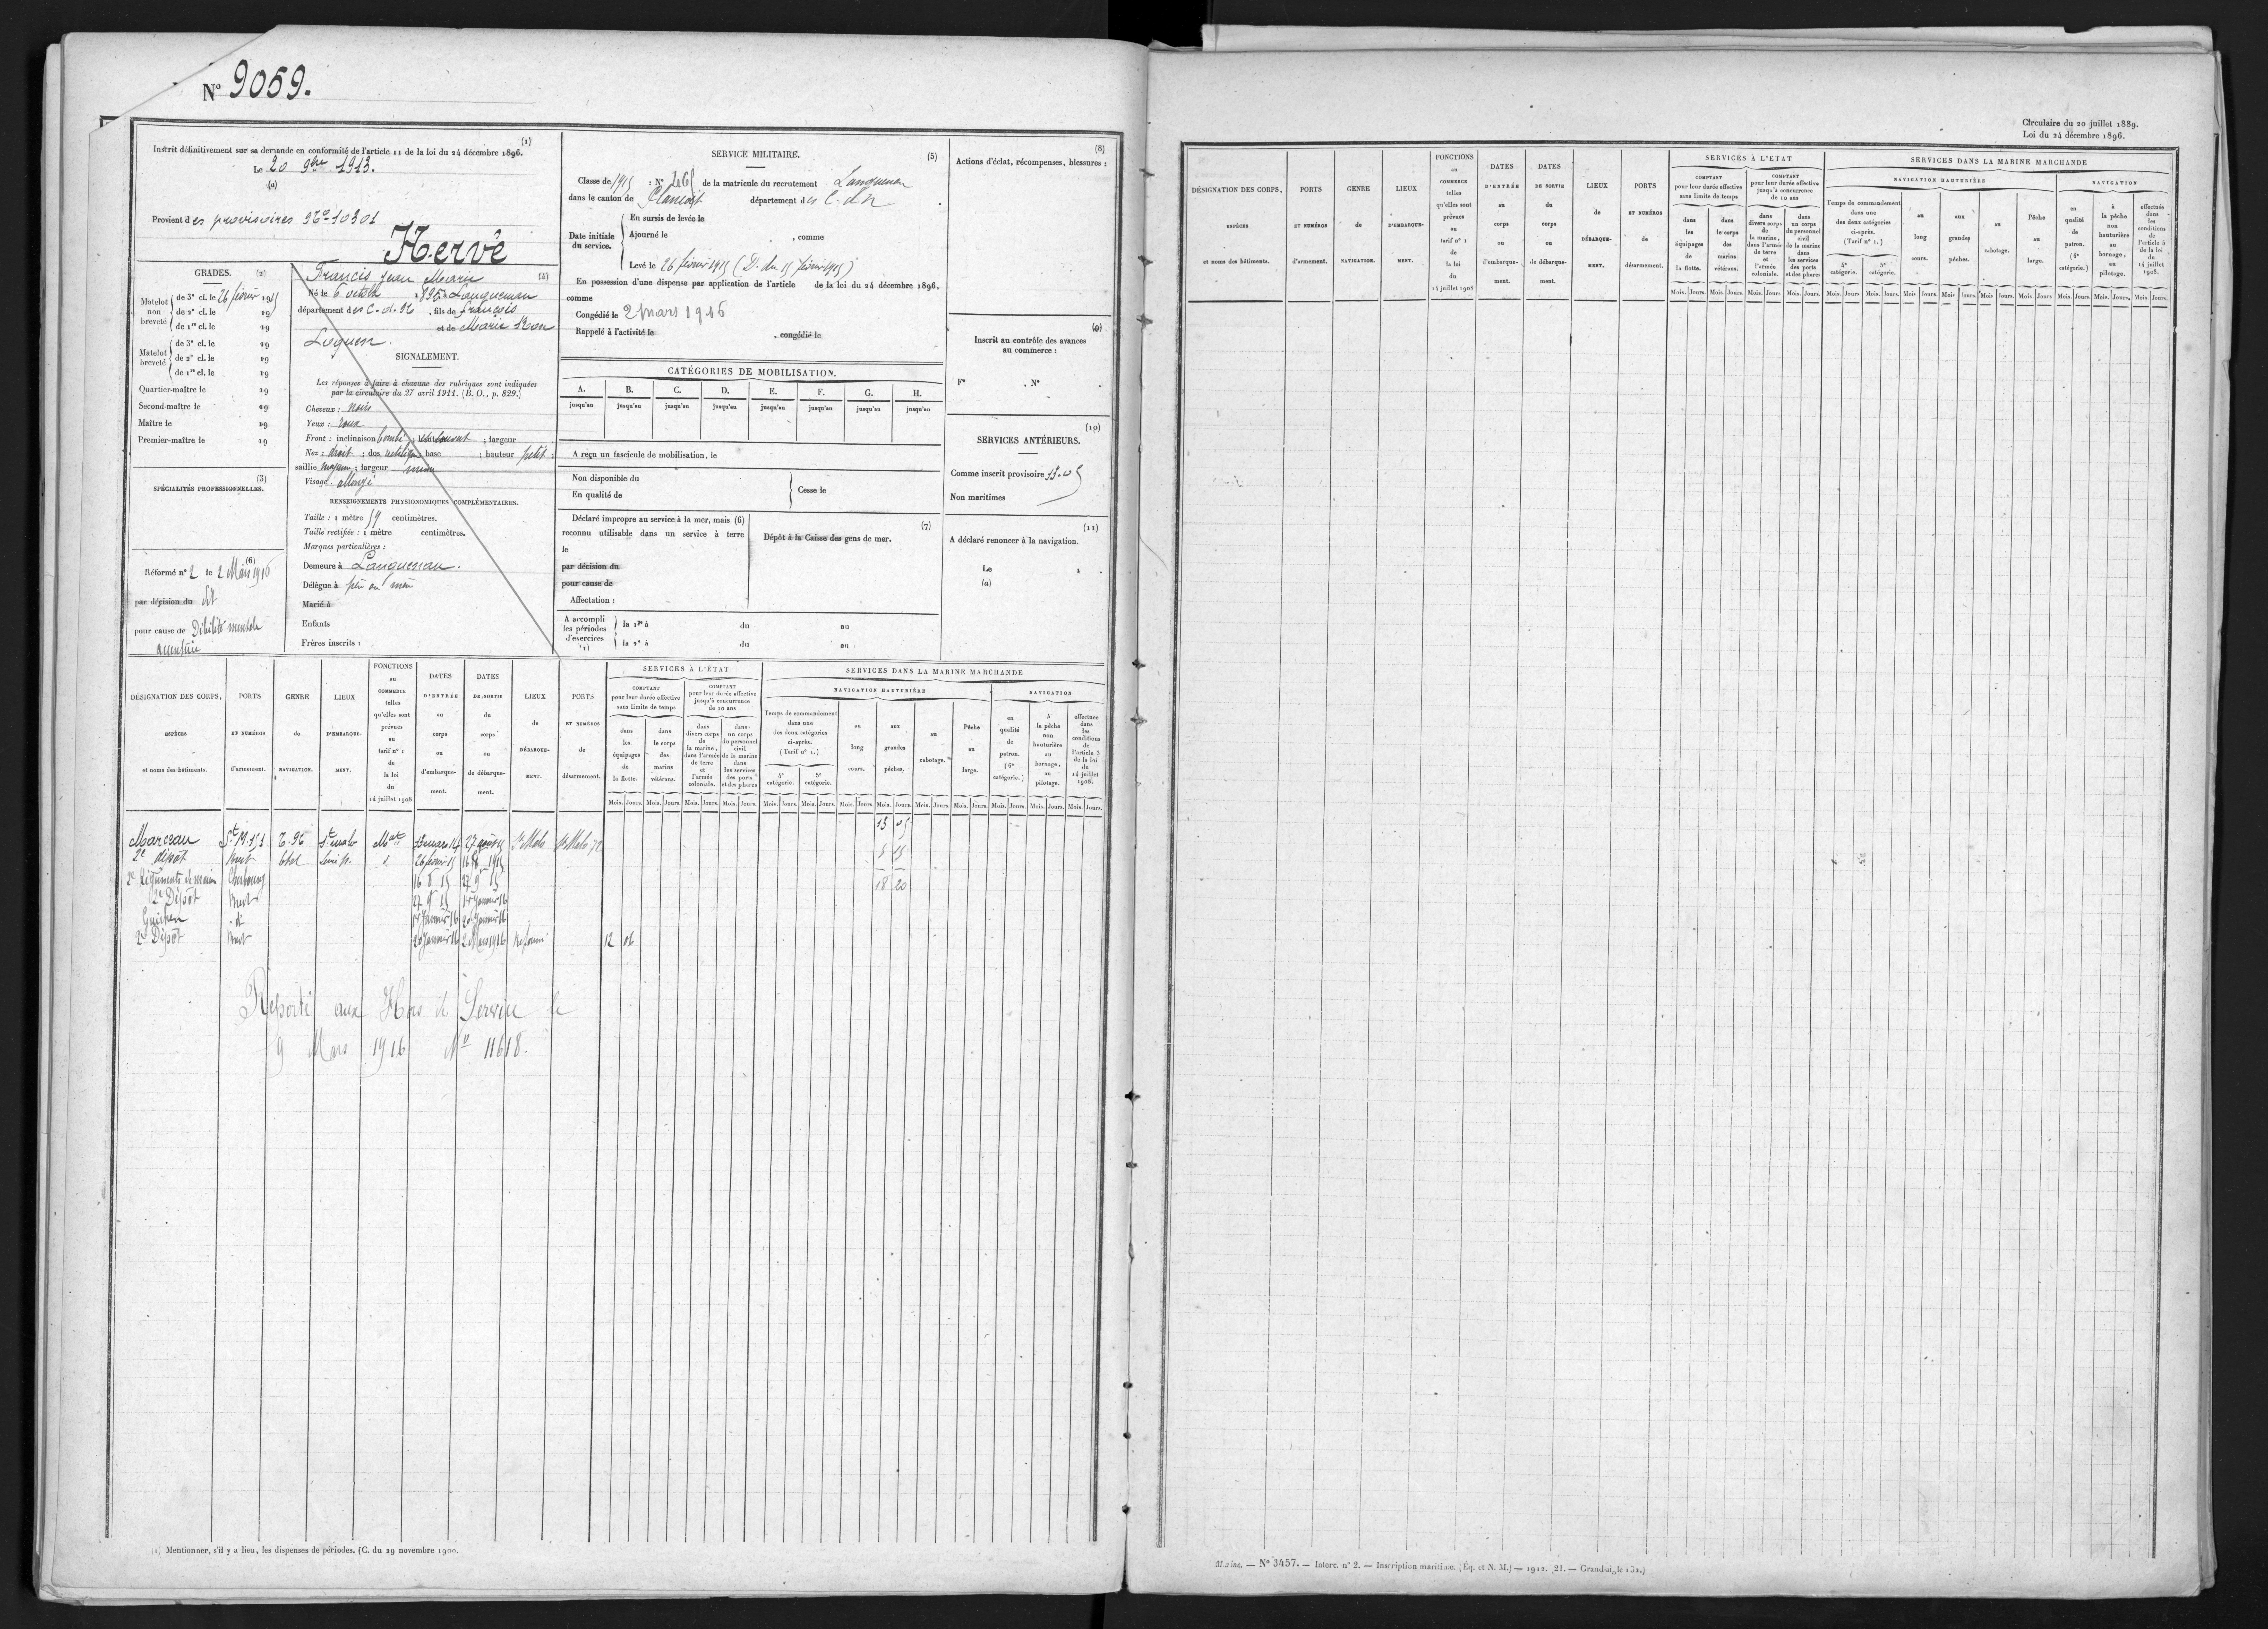 N° 9059.
Inscrit définitivement sur sa demande en conformité de l'article 11 de la loi du 24 décembre 1896. (1)
Le 20 9bre 1913.
(a)
Provient des provisoires N° 10301
Hervé
GRADES. (2)
Matelot non breveté
de 3e cl. le 26 février 1915
de 2e cl. le 19
de 1re cl. le 19
Matelot breveté
de 3e cl. le 19
de 2e cl. le 19
de 1re cl. le 19
Quartier-maître le 19
Second-maître le 19
Maître le 19
Premier-maître le 19
(3)
SPÉCIALITÉS PROFESSIONNELLES.
(6)
Réformé n° 2 le 2 Mars 1916
par décision du dit
pour cause de Débilité mentale
Francis Jean Marie (4)
Né le 6 octobre 1895 à Languenan
département des C. d. N. , fils de François
et de Marie
SIGNALEMENT.
Les réponses à faire à chacune des rubriques sont indiquées
par la circulaire du 27 avril 1911. (B. O., p. 829.)
Cheveux : Noirs
Yeux : roux
Front : inclinaison bombé ; hauteur ; largeur
Nez : droit ; dos ; base ; hauteur petit ;
saillie moyenne ; largeur
Visage allongé
RENSEIGNEMENTS PHYSIONOMIQUES COMPLÉMENTAIRES.
Taille : 1 mètre 59 centimètres.
Taille rectifiée : 1 mètre centimètres.
Marques particulières :
Demeure à Languenan.
Délègue à père ou mère
Marié à
Enfants
Frères inscrits :
SERVICE MILITAIRE. (5)
Classe de 1915 : N° 265 de la matricule du recrutement Languenan
dans le canton de Plancoët département des C. d. N
Date initiale du service.
En sursis de levée le
Ajourné le , comme
Levé le 26 février 1915 (D. du 15 février 1915)
En possession d'une dispense par application de l'article de la loi du 24 décembre 1896,
comme
Congédié le 2 mars 1916
Rappelé à l'activité le , congédié le
CATÉGORIES DE MOBILISATION.
A. B. C. D. E. F. G. H.
jusqu'au jusqu'au jusqu'au jusqu'au jusqu'au jusqu'au jusqu'au jusqu'au
A reçu un fascicule de mobilisation, le
Non disponible du
En qualité de
Cesse le
Déclaré impropre au service à la mer, mais (6)
reconnu utilisable dans un service à terre
le
par décision du
pour cause de
Affectation :
(7)
Dépôt à la Caisse des gens de mer.
A accompli les périodes d'exercices (1)
la 1re à du au
la 2e à du au
(8)
Actions d'éclat, récompenses, blessures :
(9)
Inscrit au contrôle des avances
au commerce :
F° , N° .
(10)
SERVICES ANTÉRIEURS.
Comme inscrit provisoire 13.05
Non maritimes
(11)
A déclaré renoncer à la navigation.
Le 1 .
(a)
DÉSIGNATION DES CORPS, ESPÈCES et noms des bâtiments.
PORTS ET NUMÉROS d'armement.
GENRE de NAVIGATION.
LIEUX D'EMBARQUEMENT.
FONCTIONS au COMMERCE telles qu'elles sont prévues au tarif n° 2 de la loi du 14 juillet 1908
DATES D'ENTRÉE au corps ou d'embarquement.
DATES DE SORTIE du corps ou de débarquement.
LIEUX de DÉBARQUEMENT.
PORTS ET NUMÉROS de désarmement.
SERVICES À L'ETAT
COMPTANT pour leur durée effective sans limite de temps
dans les équipages de la flotte.
dans le corps des marins vétérans.
COMPTANT pour leur durée effective jusqu'à concurrence de 10 ans
dans divers corps de la marine, dans l'armée de terre et l'armée coloniale.
dans un corps du personnel civil de la marine dans les services des ports et des phares
SERVICES DANS LA MARINE MARCHANDE
NAVIGATION HAUTURIÈRE
Temps de commandement dans une des deux catégories ci-après. (Tarif n° 1.)
4e catégorie. 5e catégorie.
au long cours.
aux grandes pêches.
au cabotage.
Pêche au large.
NAVIGATION
en qualité de patron. (6e catégorie.)
à la pêche non hauturière au bornage, au pilotage.
effectués dans les conditions de l'article 5 de la loi du 14 juillet 1908.
Mois. Jours.
13 05
Marceau St M. 151 T. N. St malo Mot 13 mars 14 27 août St Malo St Malo 72 5 15
2e dépôt Brest Etat 26 février 15 16 8 1915
18 20
2e Cherbourg 16 8 15 27 9 15
2e Dépôt Brest 27 9 15 1er Janvier 16
Guichen d° 1er Janvier 16 20 Janvier 16
2e Dépôt Brest 20 Janvier 16 2 Mars 1916 Réformé 12 06
Reporté aux Hors de Service le
9 Mars 1916 N° 11618.
(1) Mentionner, s'il y a lieu, les dispenses de périodes. (C. du 29 novembre 1900.
Circulaire du 20 juillet 1889.
Loi du 24 décembre 1896.
DÉSIGNATION DES CORPS, ESPÈCES et noms des bâtiments.
PORTS ET NUMÉROS d'armement.
GENRE de NAVIGATION.
LIEUX D'EMBARQUEMENT.
FONCTIONS au COMMERCE telles qu'elles sont prévues au tarif n° 2 de la loi du 14 juillet 1908
DATES D'ENTRÉE au corps ou d'embarquement.
DATES DE SORTIE du corps ou de débarquement.
LIEUX de DÉBARQUEMENT.
PORTS ET NUMÉROS de désarmement.
SERVICES À L'ETAT
COMPTANT pour leur durée effective sans limite de temps
dans les équipages de la flotte.
dans le corps des marins vétérans.
COMPTANT pour leur durée effective jusqu'à concurrence de 10 ans
dans divers corps de la marine, dans l'armée de terre et l'armée coloniale.
dans un corps du personnel civil de la marine dans les services des ports et des phares
SERVICES DANS LA MARINE MARCHANDE
NAVIGATION HAUTURIÈRE
Temps de commandement dans une des deux catégories ci-après. (Tarif n° 1.)
4e catégorie. 5e catégorie.
au long cours.
aux grandes pêches.
au cabotage.
Pêche au large.
NAVIGATION
en qualité de patron. (6e catégorie.)
à la pêche non hauturière au bornage, au pilotage.
effectués dans les conditions de l'article 5 de la loi du 14 juillet 1908.
Mois. Jours.
N° 3457. — Interc. n° 2. — Inscription maritime. (Éq. et N. M.) — 1912. 21. — Grand-aigle